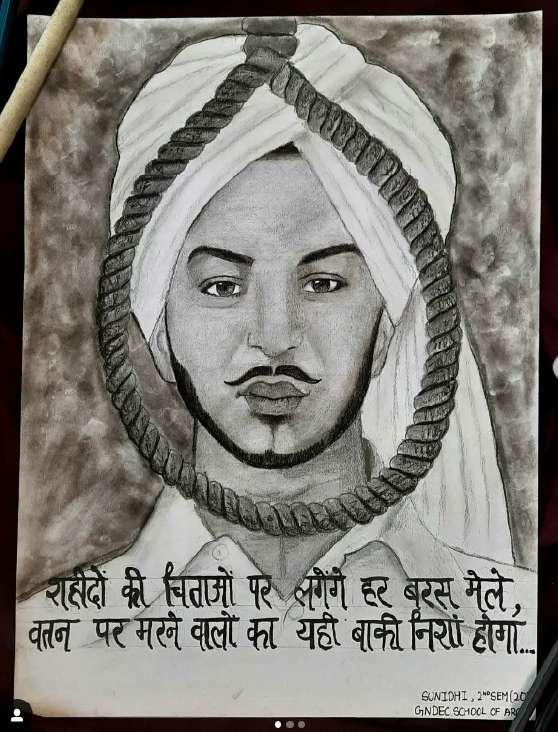 शहीदों की चिताओं पर लगेंगे हर बरस मेले,
वतन पर मरने वालों का यही बाकी निशां होगा...
SUNIDHI, 2ND SEM (20
GNDEC SCHOOL OF